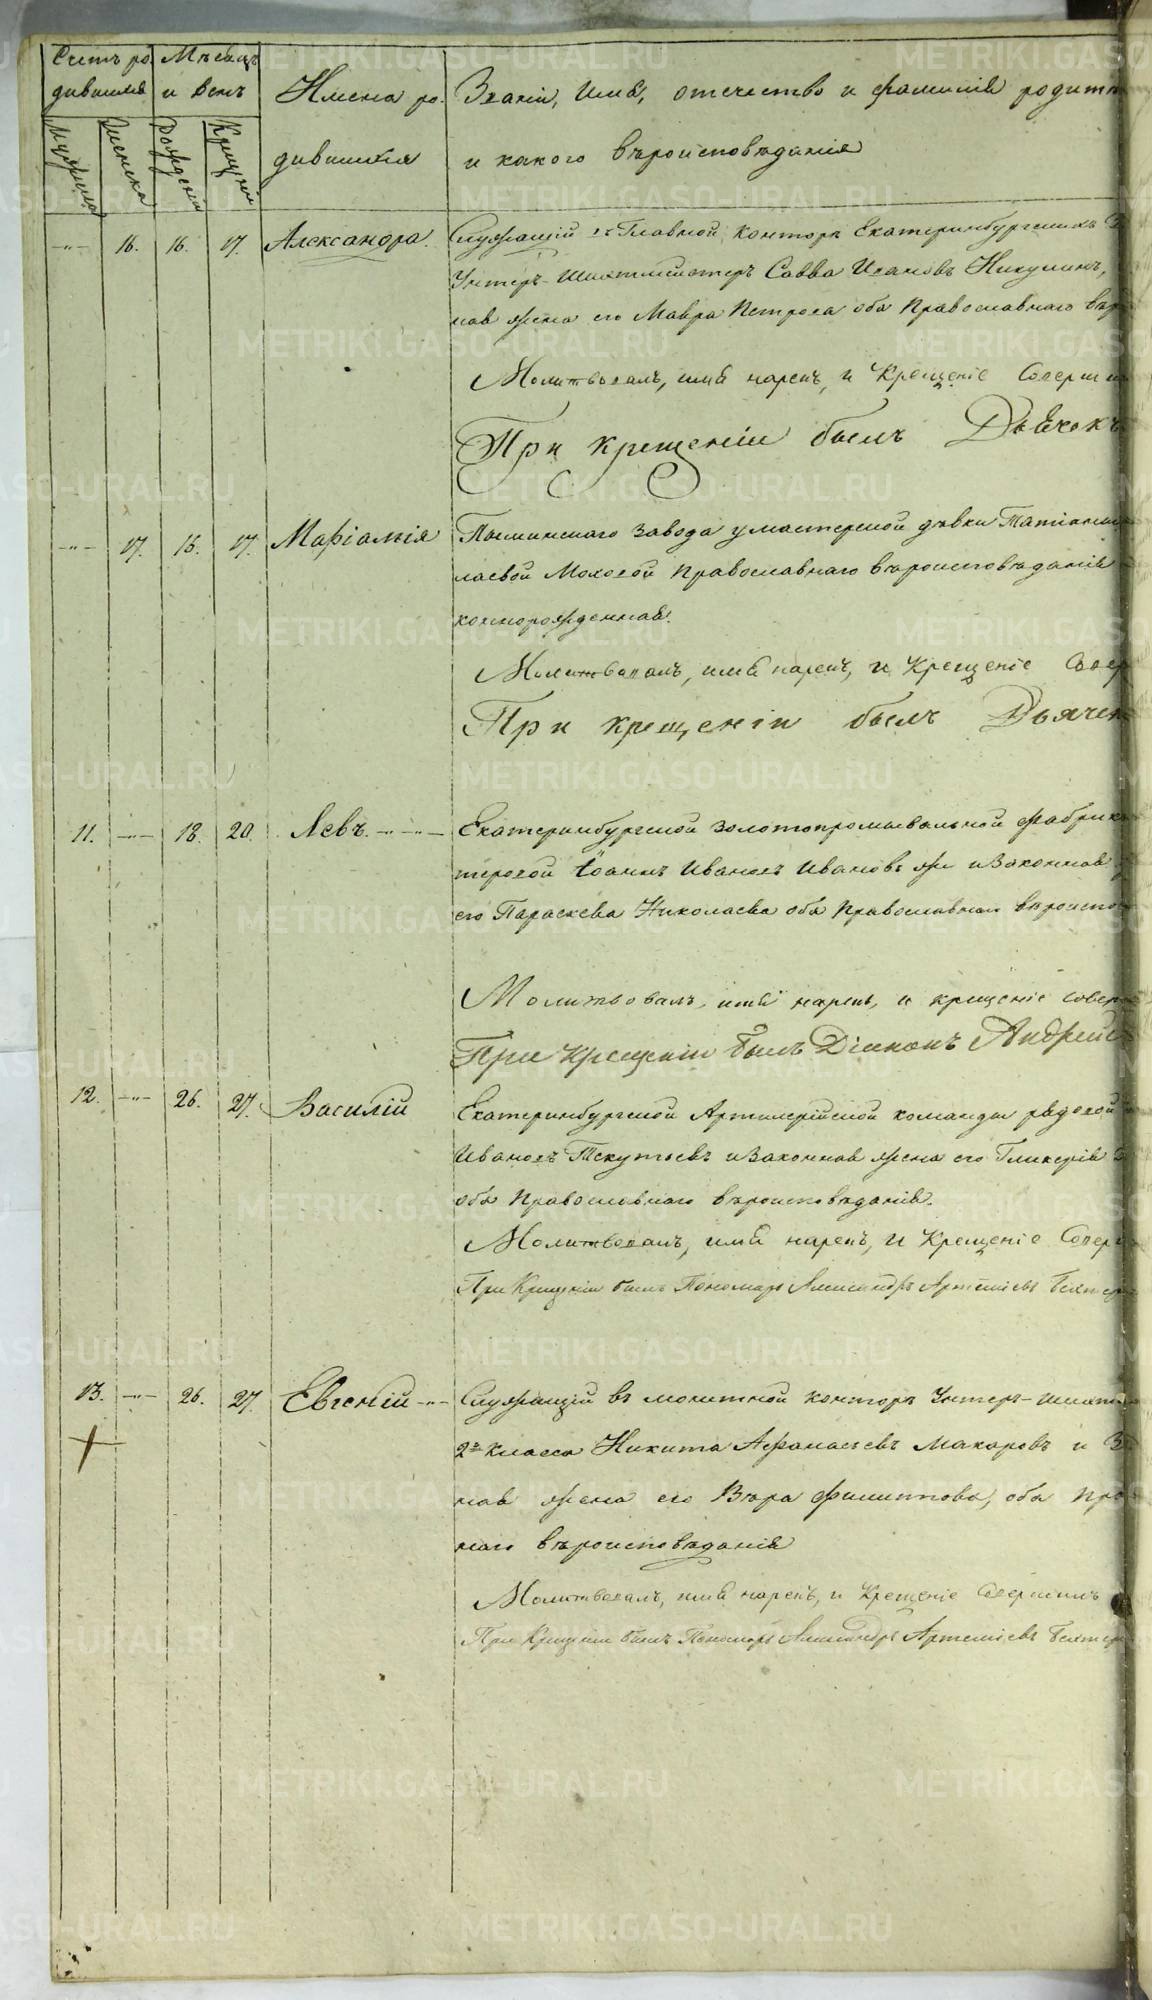 Счетъ ро
дившихся
Мѣсяцъ
и день
Имена ро
дившихся
Званіе, имя, отечество и фамилія родит
и какого вѣроисповѣданія
Мужеска
Женска
Рожденія
Крещенія
16. 16. 17. Александра.
Служащій въ Главной Конторѣ Екатеринбургскихъ
Унтеръ-Шихтмейстеръ Савва Ивановъ Никулинъ,
ная жена его Мавра Петрова оба Православнаго вѣр
Молитвовалъ, имя нарекъ, и Крещеніе Соверши
При крещеніи былъ Дьячокъ
17. 16. 17. Маріамія
Пышминскаго завода у мастерской дѣвки Татіаны
лаевой Моховой Православнаго вѣроисповѣданія
коннорожденная.
Молитвовалъ, имя нарекъ, и Крещеніе Совер
При крещеніи былъ Дьячек
11. 18. 20. Левъ.
Екатеринбургской золотопромывальной фабрик
теровой Іоаннъ Ивановъ Ивановъ же и Законная
его Параскева Николаева оба Православнаго вѣроиспо
Молитвовалъ, имя нарекъ, и крещеніе совер
При Крещеніи былъ Діаконъ Андрей
12. 26. 27. Василій
Екатеринбургской Артилерійской команды рядовой
Ивановъ Текутьевъ и Законная жена его Гликерія
оба Православнаго вѣроисповѣданія.
Молитвовалъ, имя нарекъ, и Крещеніе Совер
При Крещеніи былъ Пономарь Александръ Артеміевъ
13. 26. 27. Евгеній
Служащій въ монетной конторѣ Унтеръ-Шихт
2го Класса Никита Афанасьевъ Макаровъ и З
ная жена его Вѣра Филиппова, оба Пра
наго вѣроисповѣданія
Молитвовалъ, имя нарекъ, и Крещеніе Совершилъ
При Крещеніи былъ Пономарь Александръ Артеміевъ